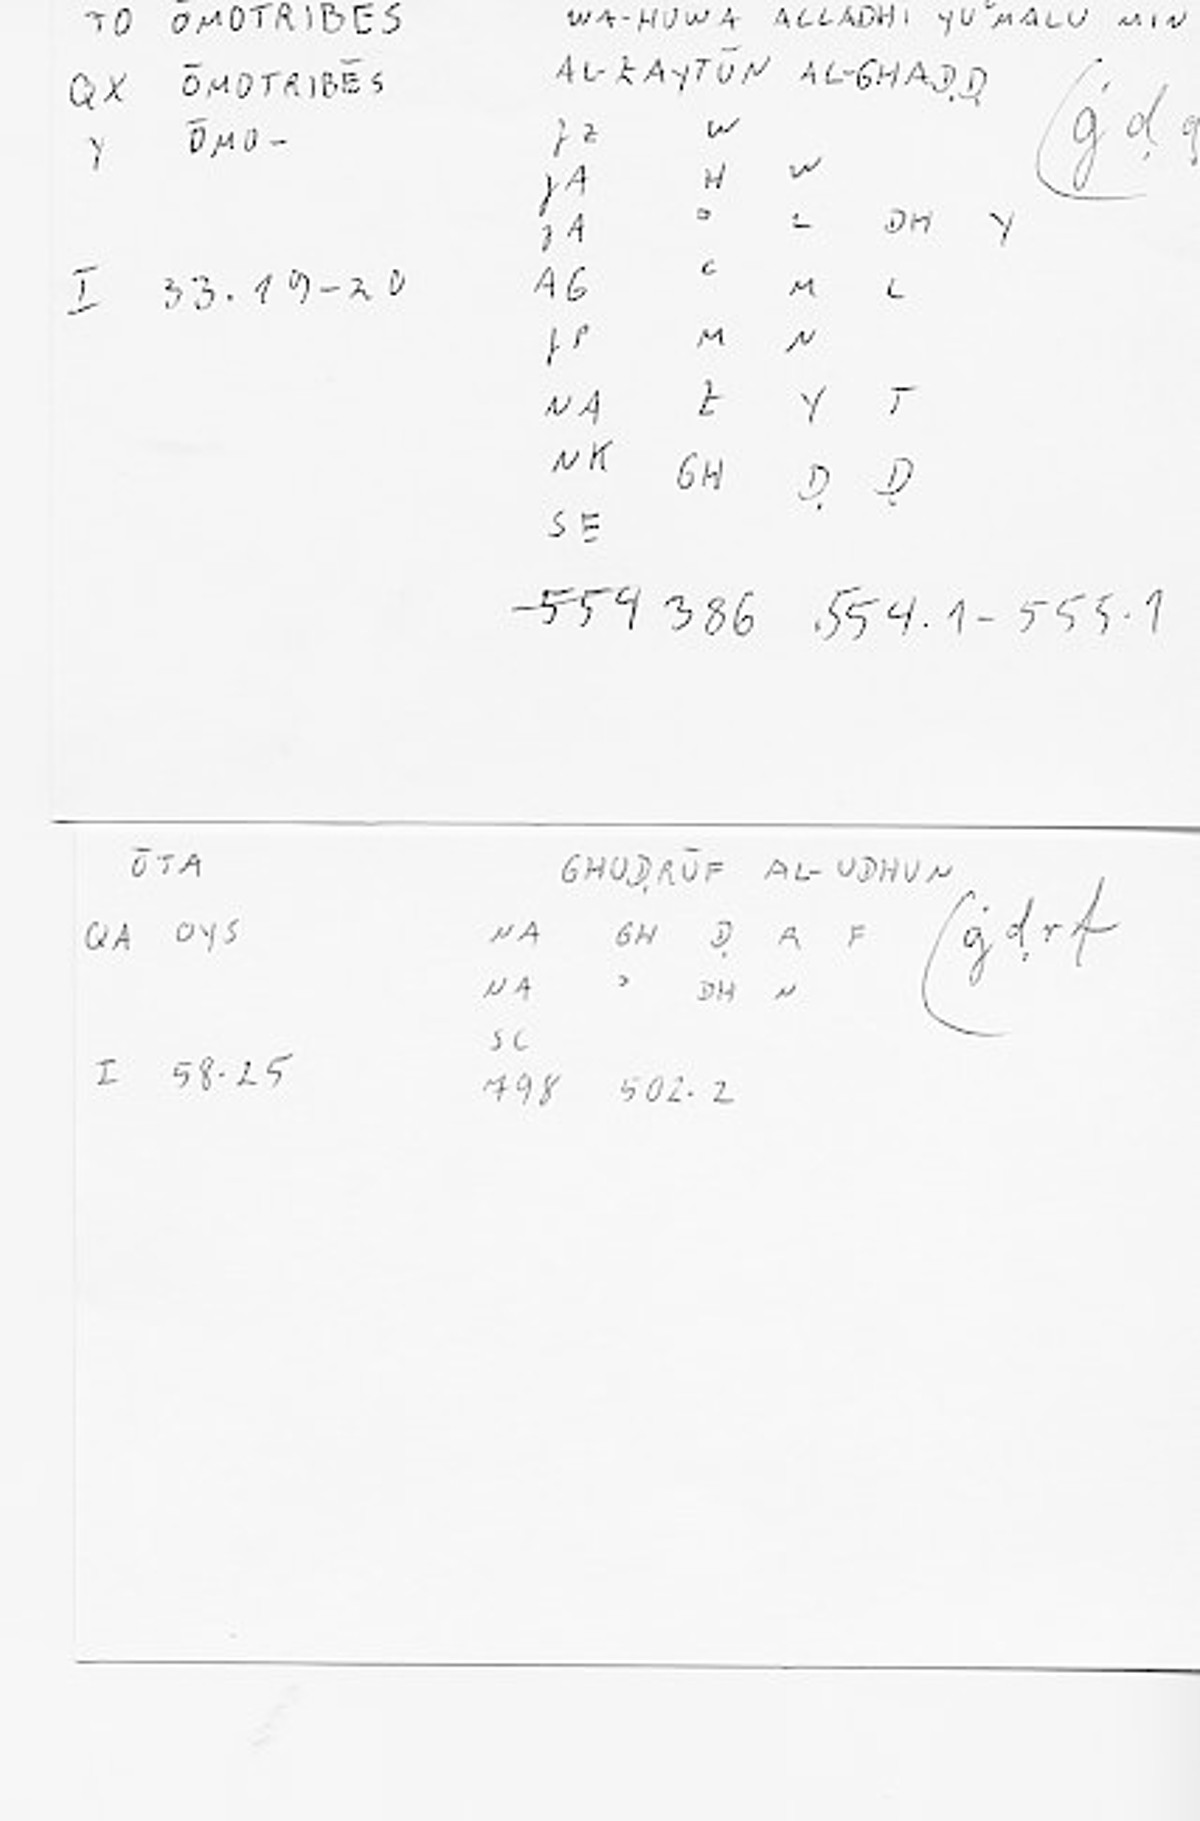 TO ŌMOTRIBES WA-HUWA ALLADHI YUʿMALU MIN
QX ŌMOTRIBĒS AL-ZAYTŪN AL-GHAḌḌ (ġ ḍ
Y ŌMO- JZ W
JA H W
JA ʾ L DH Y
I 33.19-20 AG ʿ M L
JP M N
NA Z Y T
NK GH Ḍ Ḍ
SE
554 386 554.1-555.1
ŌTA GHUḌRŪF AL-UDHUN
QA OYS NA GH Ḍ R F (ġ ḍ r f
NA ʾ DH N
SC
I 58.25 798 502.2